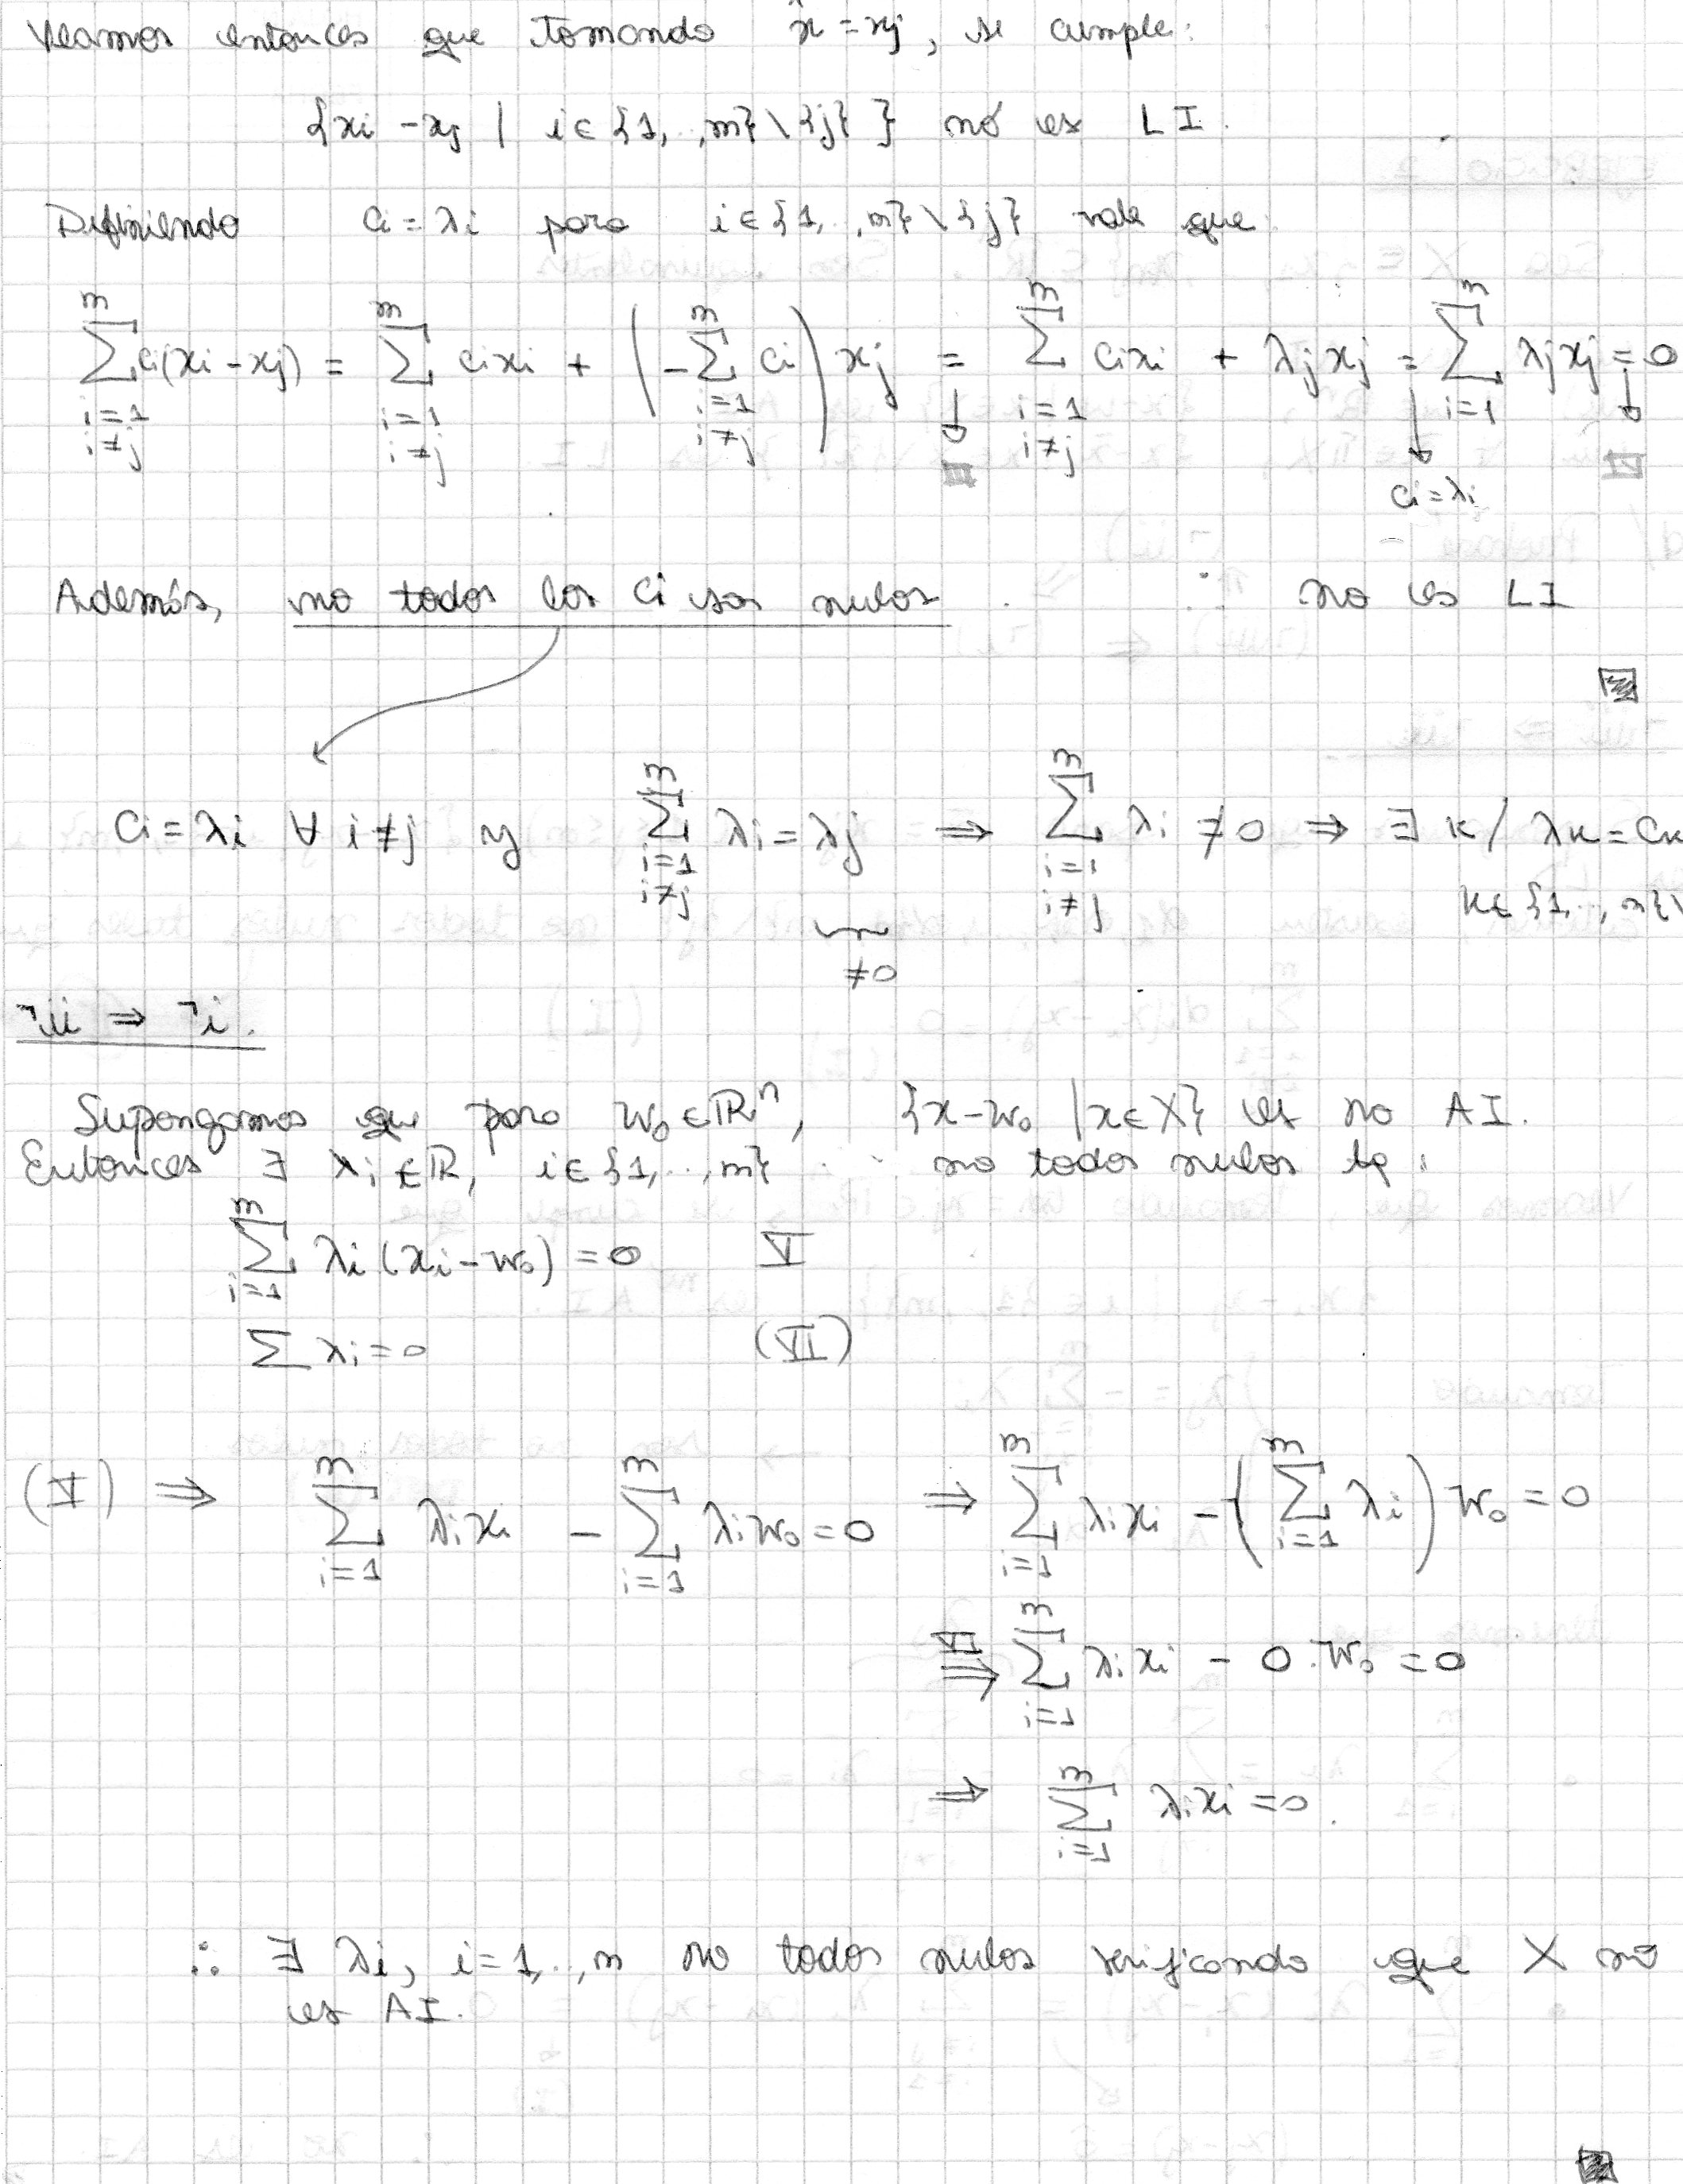 Veamos entonces que tomando x̂ = xj, se cumple:
{xi - xj | i ∈ {1,..,m} \ {j} } no es LI.
Definiendo ci = λi para i ∈ {1,..,m} \ {j} vale que
∑_{i=1, i≠j}^{m} ci(xi - xj) = ∑_{i=1, i≠j}^{m} cixi + (-∑_{i=1, i≠j}^{m} ci) xj = ∑_{i=1, i≠j}^{m} cixi + λjxj = ∑_{i=1}^{m} λjxj = 0
ci = λi
Además, no todos los ci son nulos ∴ no es LI
ci = λi ∀ i≠j y ∑_{i=1, i≠j}^{m} λi = λj ⇒ ∑_{i=1, i≠j}^{m} λi ≠ 0 ⇒ ∃ k / λk = ck
≠0
k ∈ {1,..,m} \
¬ii ⇒ ¬i.
Supongamos que para w₀ ∈ ℝⁿ, {x - w₀ | x ∈ X} es no AI.
Entonces ∃ λi ∈ ℝ, i ∈ {1,..,m} no todos nulos tq:
∑_{i=1}^{m} λi(xi - w₀) = 0 V
∑ λi = 0 (VI)
(V) ⇒ ∑_{i=1}^{m} λixi - ∑_{i=1}^{m} λiw₀ = 0 ⇒ ∑_{i=1}^{m} λixi - (∑_{i=1}^{m} λi) w₀ = 0
VI ⇒ ∑_{i=1}^{m} λixi - 0.w₀ = 0
⇒ ∑_{i=1}^{m} λixi = 0.
∴ ∃ λi, i=1,..,m no todos nulos verificando que X no
es AI.